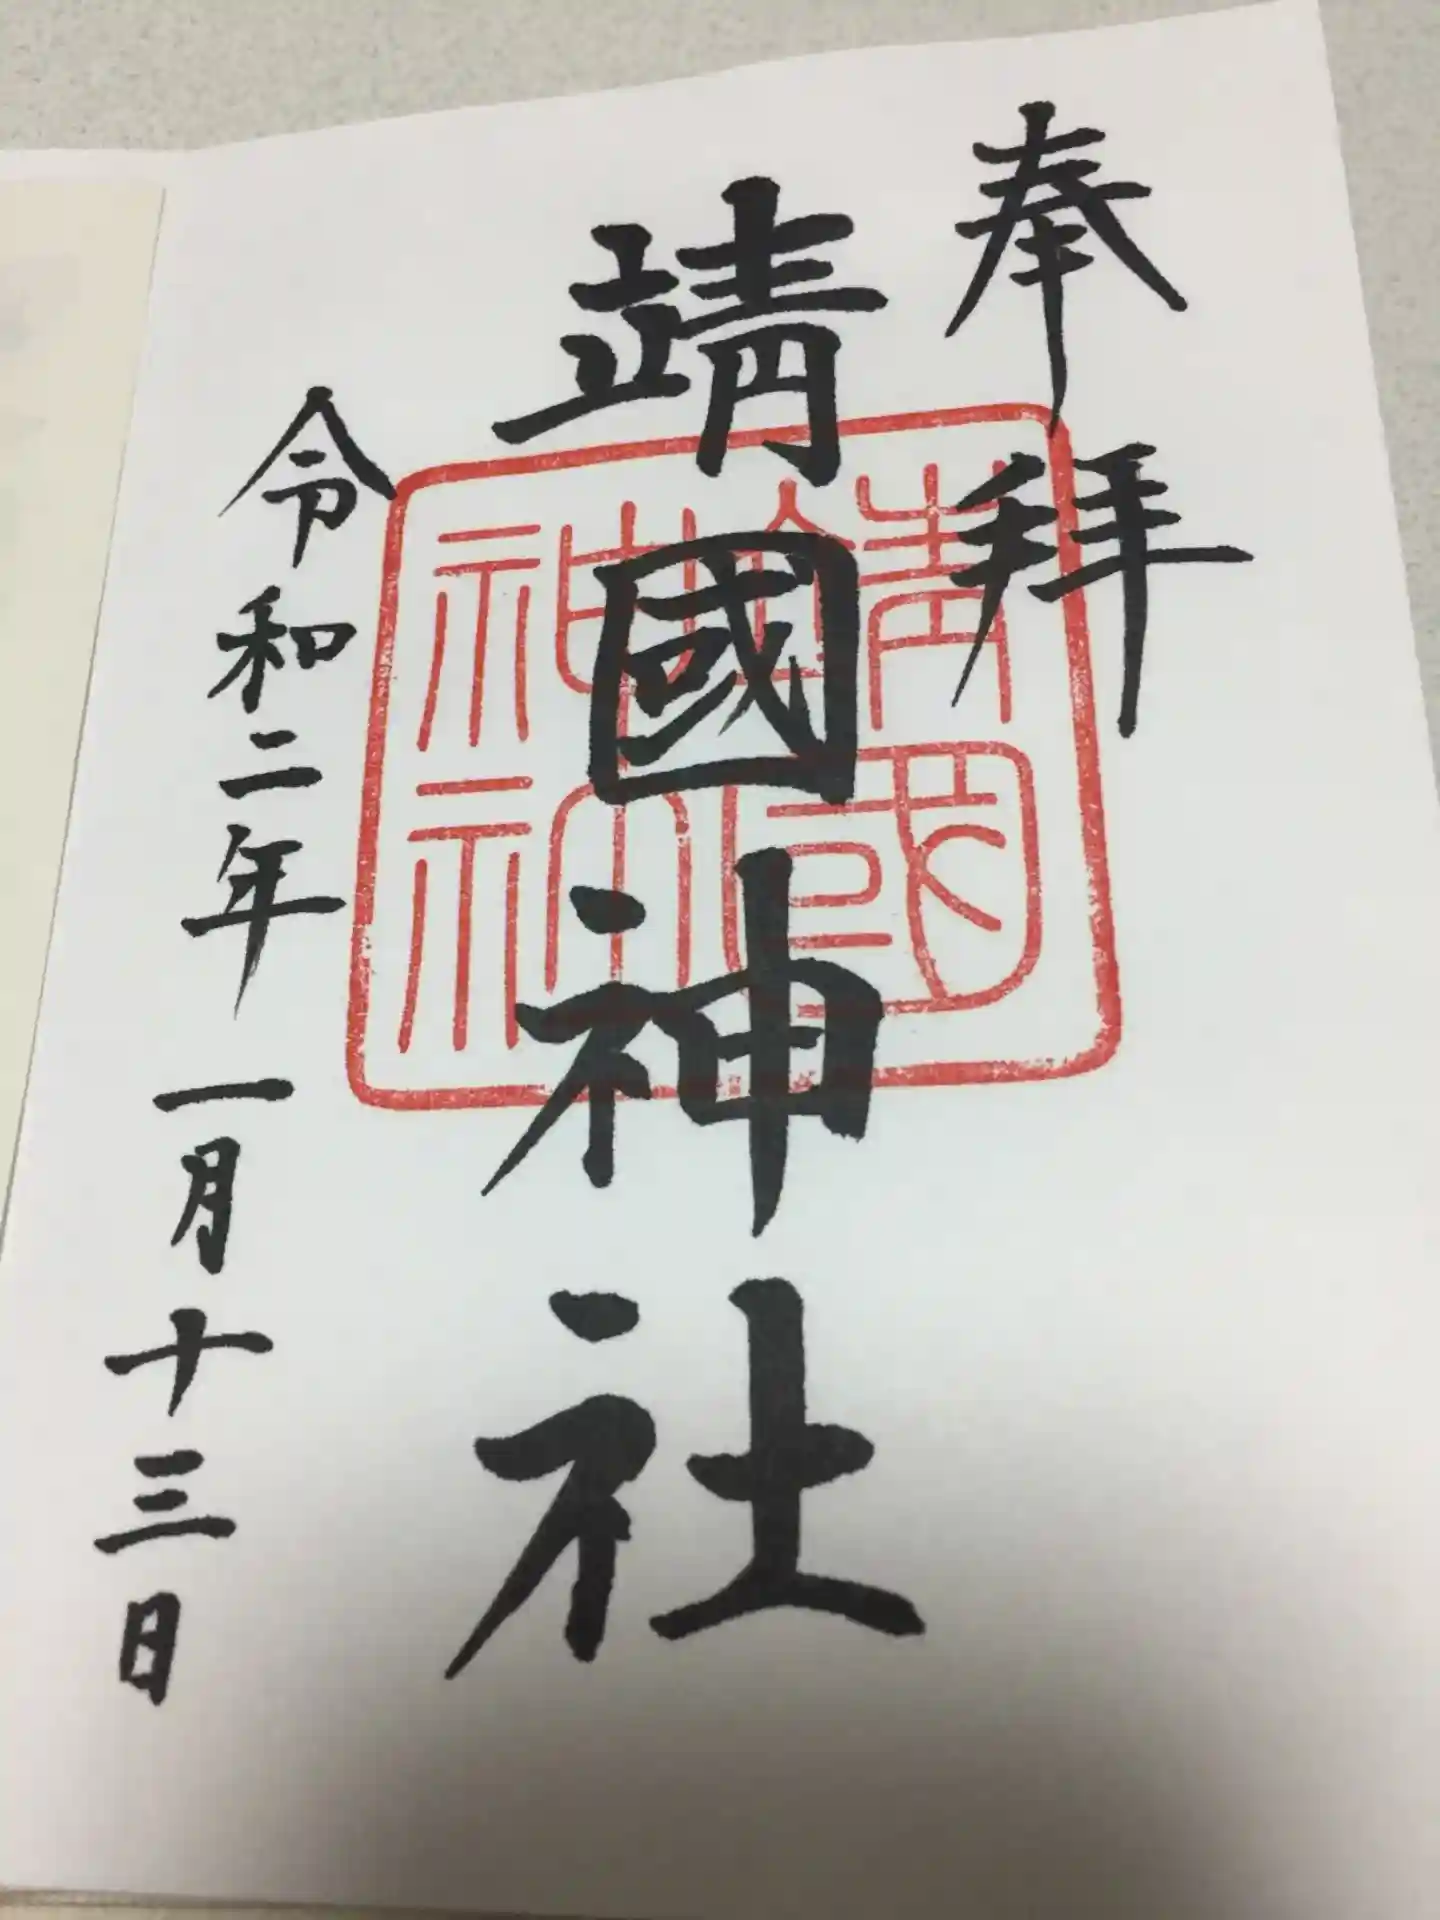 奉拝
靖國神社
令和二年一月十三日
靖國神社